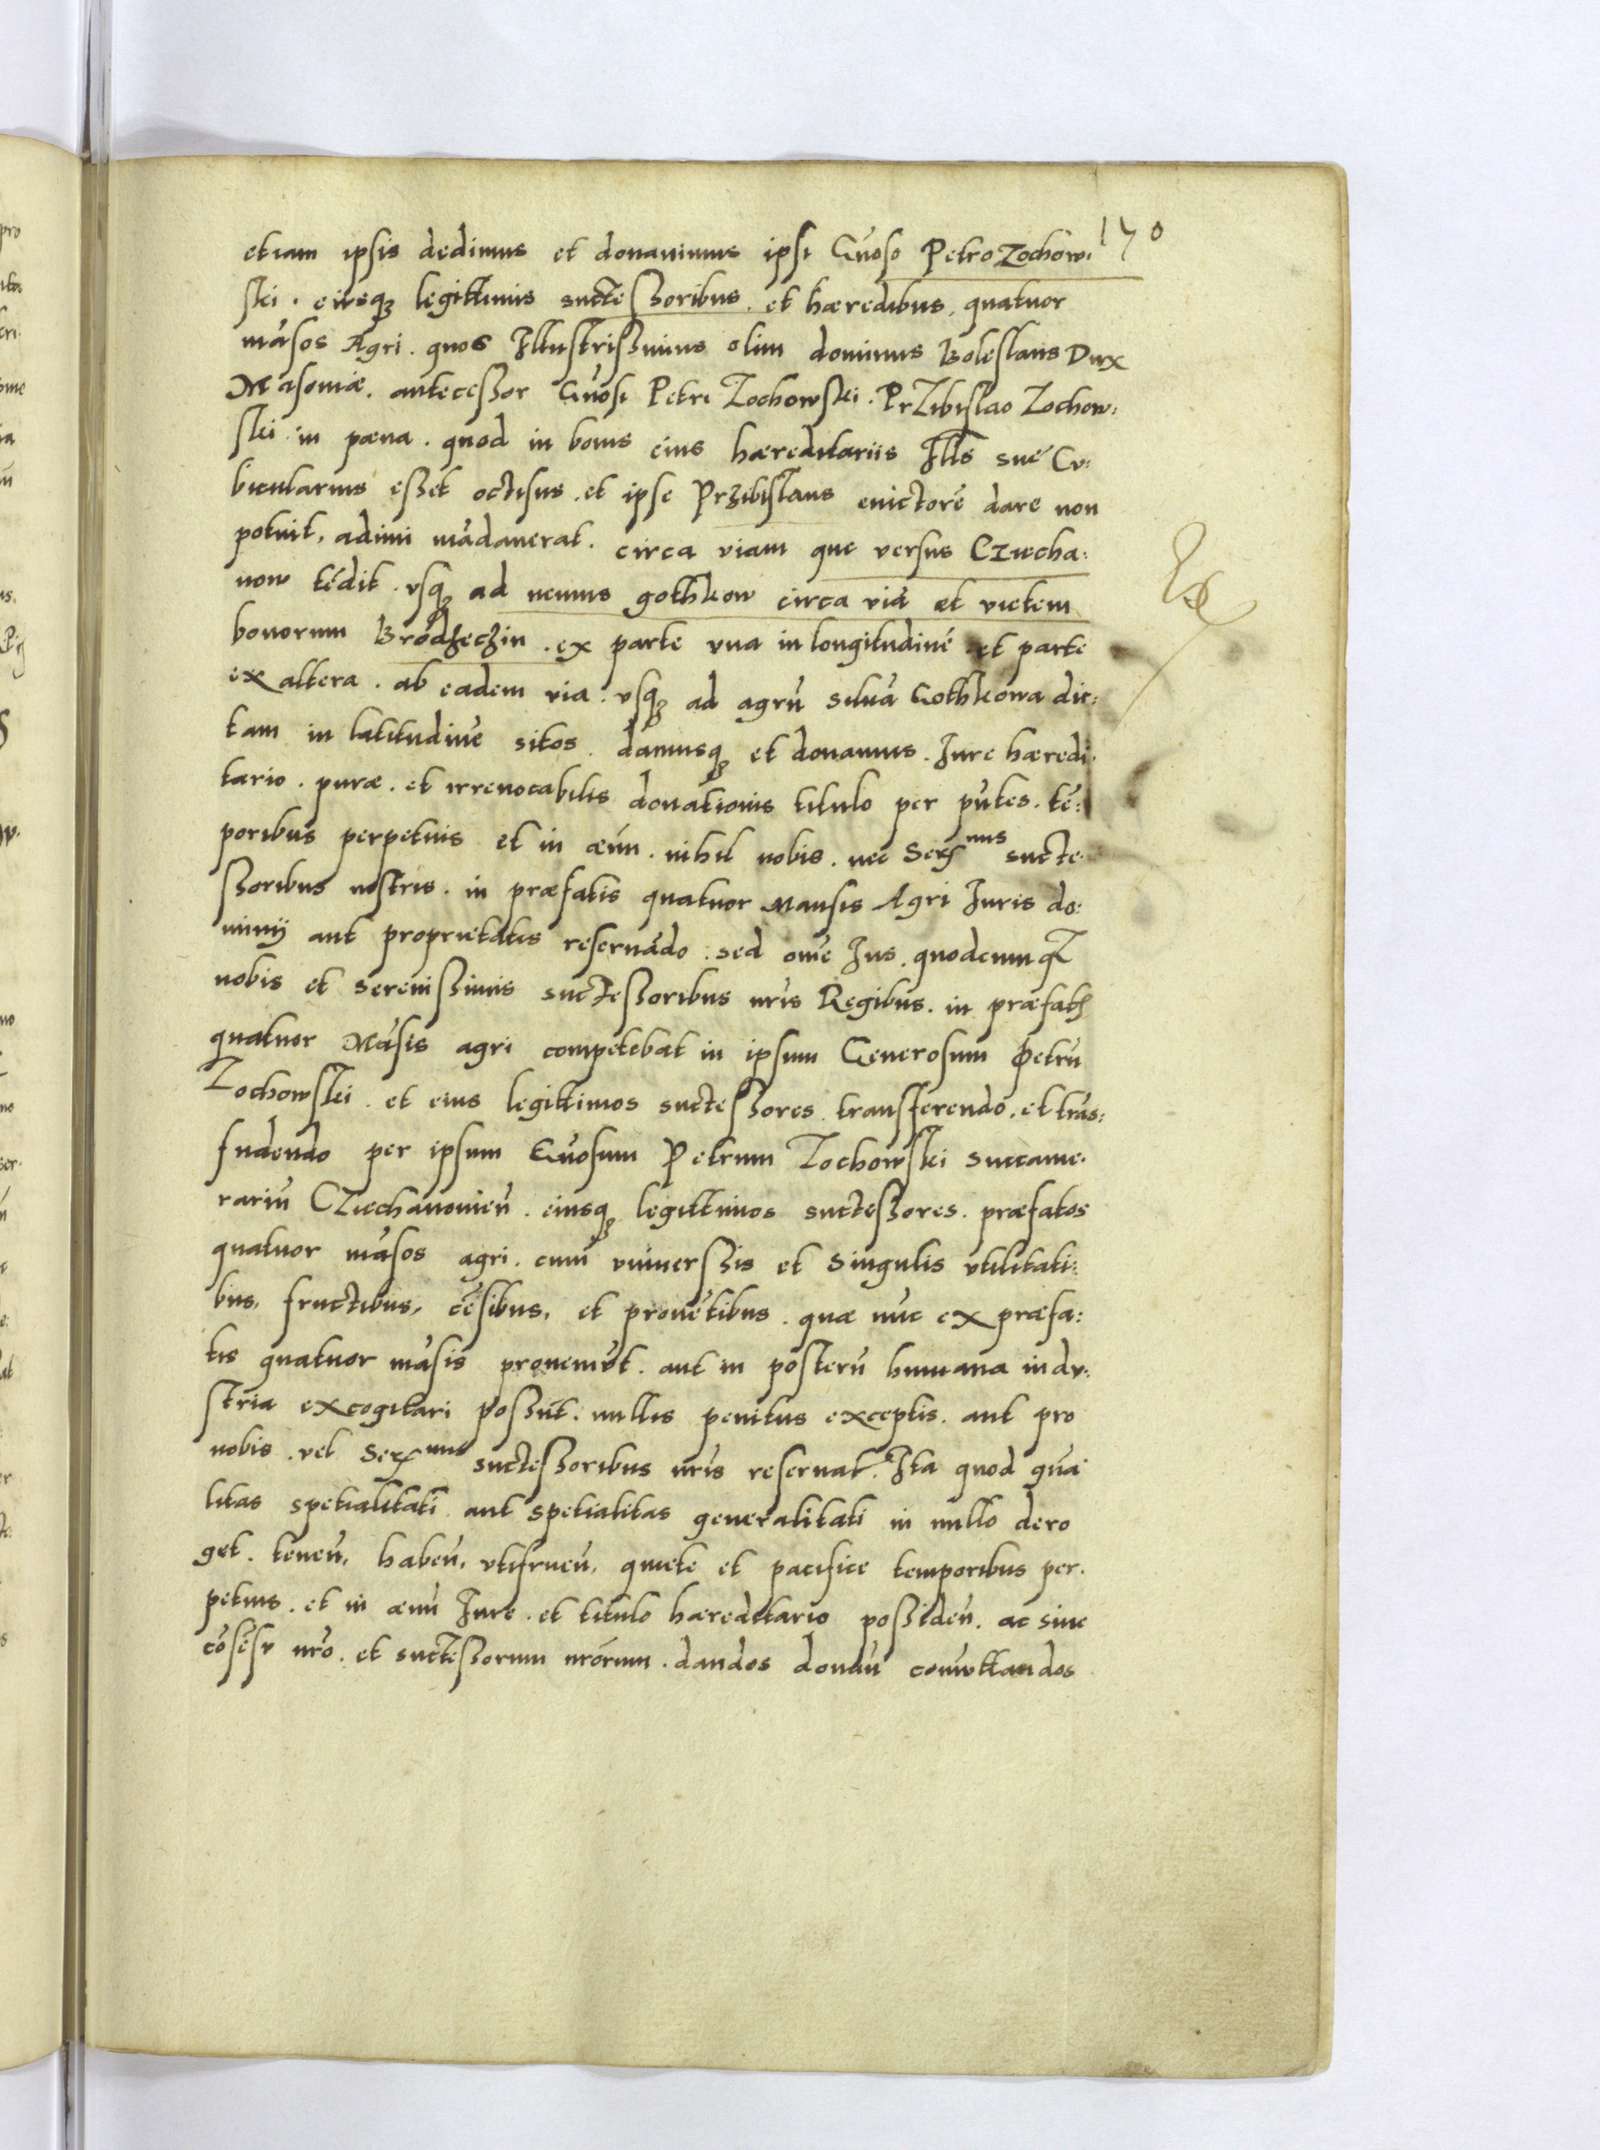 170
etiam ipsis dedimus et donavimus ipsi Gn̄oso Petro Zochow:
ski . eiusq; legittimis suctessoribus . et hæredibus . quatuor
mãsos Agri . quos Illustrissimus olim dominus Boleslaus Dux
Masoniæ . antecessor Gn̄osi Petri Zochowski . PrZibislao Zochow:
ski in pœna . quod in bonis eius hæreditariis Illis suę Cu:
bicularius esset octisus . et ipse Przibislaus evictorē dare non
potuit, adimi mãdauerat . circa viam que versus CZiecha:
now tēdit . vsq; ad nemus gothkow circa viã et rictem
bonorum Brodzeczin . ex parte vna in longitudinē et parte
ex altera . ab eadem via . vsq; ad agrũ siluã Gothkowa dic:
tam in latitudine sitos . damusq; et donamus . Iure hæredi:
tario . puræ . et irreuocabilis donationis titulo per pn̄tes . tē:
poribus perpetuis et in æuũ . nihil nobis . nec Serꝫmis sucte:
ssoribus nostris . in præfatis quatuor Mansis Agri Iuris do:
minij aut proprietatis reseruãdo . sed om̄e Ius . quodcumq
nobis et serenissimis suctessoribus nr̄is Regibus . in præfatꝫ
quatuor Mãsis agri competebat in ipsum Generosum Petrũ
Zochowski . et eius legittimos suctessores transferendo . et trãs:
fudendo per ipsum Gn̄osum Petrum Zochowski Succame:
rariũ CZiechanovieñ . eiusq; legittimos suctessores . præfatos
quatuor mãsos agri . cum vniuersis et singulis vtilitati:
bus, fructibus, cēsibus, et prouētibus . quæ nũc ex præfa:
tis quatuor mãsis proueniũt . aut in posterũ humana indu:
stria excogitari possũt . nullis penitus exceptis . aut pro
nobis . vel Serꝫmis suctessoribus nr̄is reseruat . Ita quod gn̄a
litas spetialitati aut spetialitas generalitati in nullo dero
get . teneñ, habeñ, vtifrueñ, quiete et pacifice temporibus per:
petuis . et in æuũ Iure . et titulo hæreditario possideñ . ac sine
cōsēsu nr̄o . et suctessorum nr̄orum . dandos donañ comuttandos